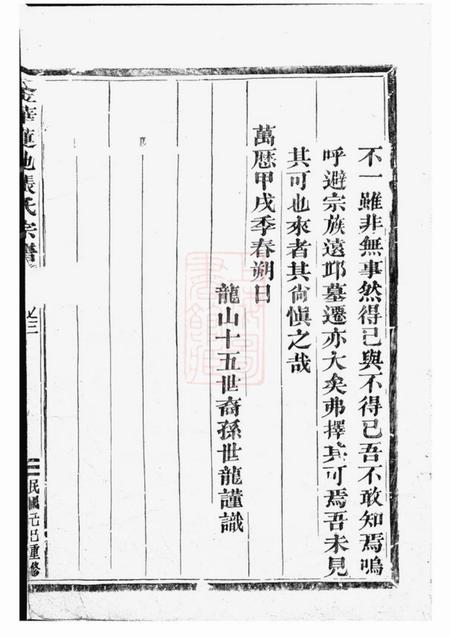 不一雖非無事然得已與不得已吾不敢知焉嗚
呼避宗族遠邱墓遷亦大矣弗擇其可焉吾未見
其可也來者其尙慎之哉
萬歷甲戌季春朔日
龍山十五世裔孫世龍謹識
金華蓮池張氏宗譜
卷三
民國己巳重修